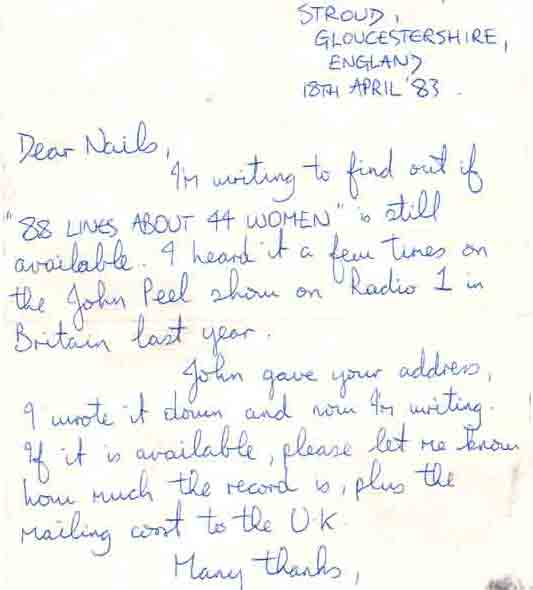 STROUD,
GLOUCESTERSHIRE,
ENGLAND
18TH APRIL '83.
Dear Nails,
I'm writing to find out if
"88 LINES ABOUT 44 WOMEN" is still
available. I heard it a few times on
the John Peel show on Radio 1 in
Britain last year.
John gave your address,
I wrote it down and now I'm writing.
If it is available, please let me know
how much the record is, plus the
mailing cost to the UK.
Many thanks,